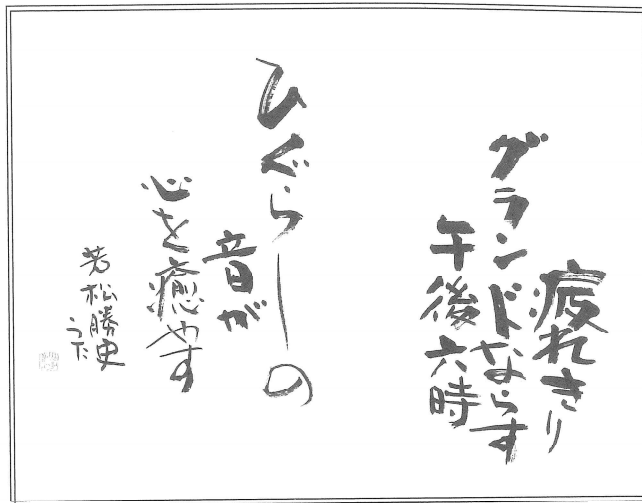 疲れきり
グランドならす
午後六時
ひぐらしの
音が
心を癒やす
若松勝史
うた